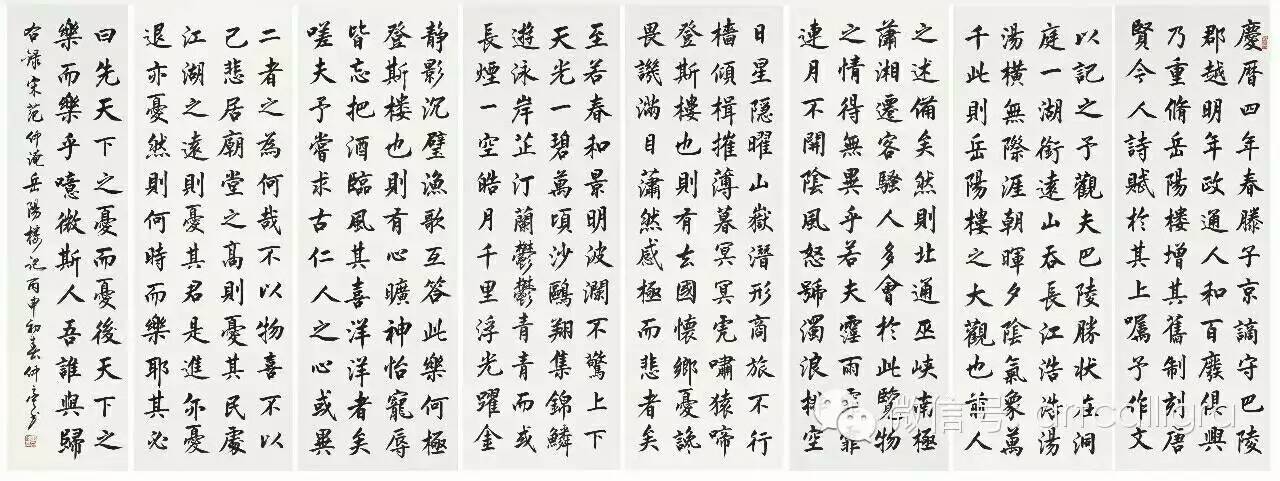 慶曆四年春滕子京謫守巴陵
郡越明年政通人和百廢俱興
乃重脩岳陽楼增其舊制刻唐
賢今人詩賦於其上囑予作文
以記之予觀夫巴陵勝状在洞
庭一湖銜遠山吞長江浩浩湯
湯橫無際涯朝暉夕陰氣象萬
千此則岳陽樓之大觀也前人
之述備矣然則北通巫峽南極
瀟湘遷客騷人多會於此覽物
之情得無異乎若夫霪雨霏霏
連月不開陰風怒號濁浪排空
日星隱曜山嶽潛形商旅不行
檣傾楫摧薄暮冥冥虎嘯猿啼
登斯樓也則有去國懷鄉憂讒
畏譏滿目蕭然感極而悲者矣
至若春和景明波瀾不驚上下
天光一碧萬頃沙鷗翔集錦鱗
遊泳岸芷汀蘭鬱鬱青青而或
長煙一空皓月千里浮光躍金
靜影沉璧漁歌互答此樂何極
登斯楼也則有心曠神怡寵辱
皆忘把酒臨風其喜洋洋者矣
嗟夫予嘗求古仁人之心或異
二者之為何哉不以物喜不以
己悲居廟堂之高則憂其民處
江湖之遠則憂其君是進亦憂
退亦憂然則何時而樂耶其必
曰先天下之憂而憂後天下之
樂而樂乎噫微斯人吾誰與歸
右録宋范仲淹岳陽樓記丙申初春仲
微信号